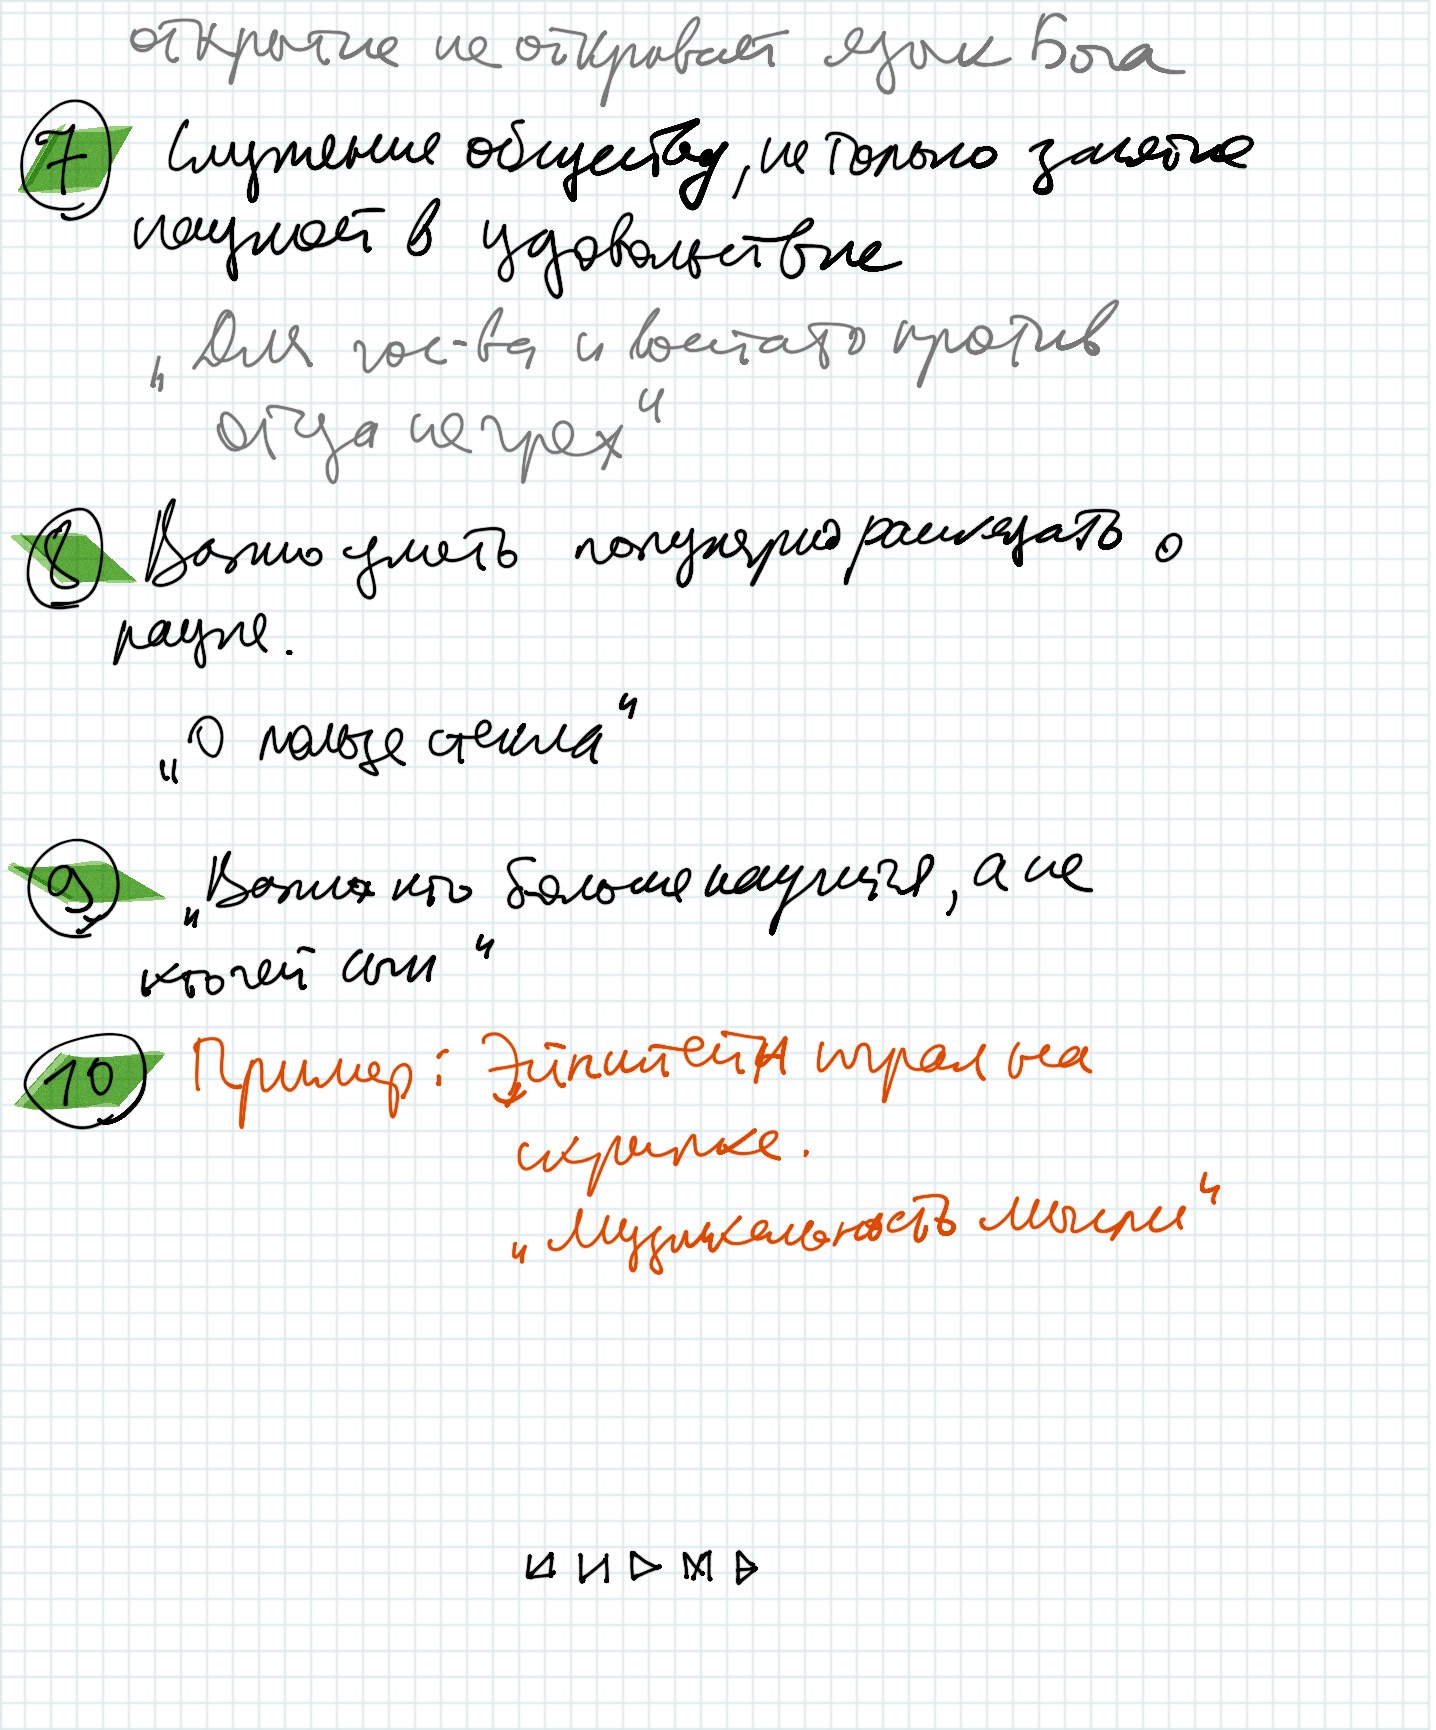 открытие не открывает язык Бога
7 Служение обществу, не только занятие
наукой в удовольствие
„Для гос-ва и восстать против
отца не грех“
8 Важно уметь популярно рассказать о
науке.
„О пользе стекла“
9 „Важно кто больше научится, а не
кто чей сын“
10 Пример: Эйнштейн играл на
скрипке.
„Музыкальность мысли“